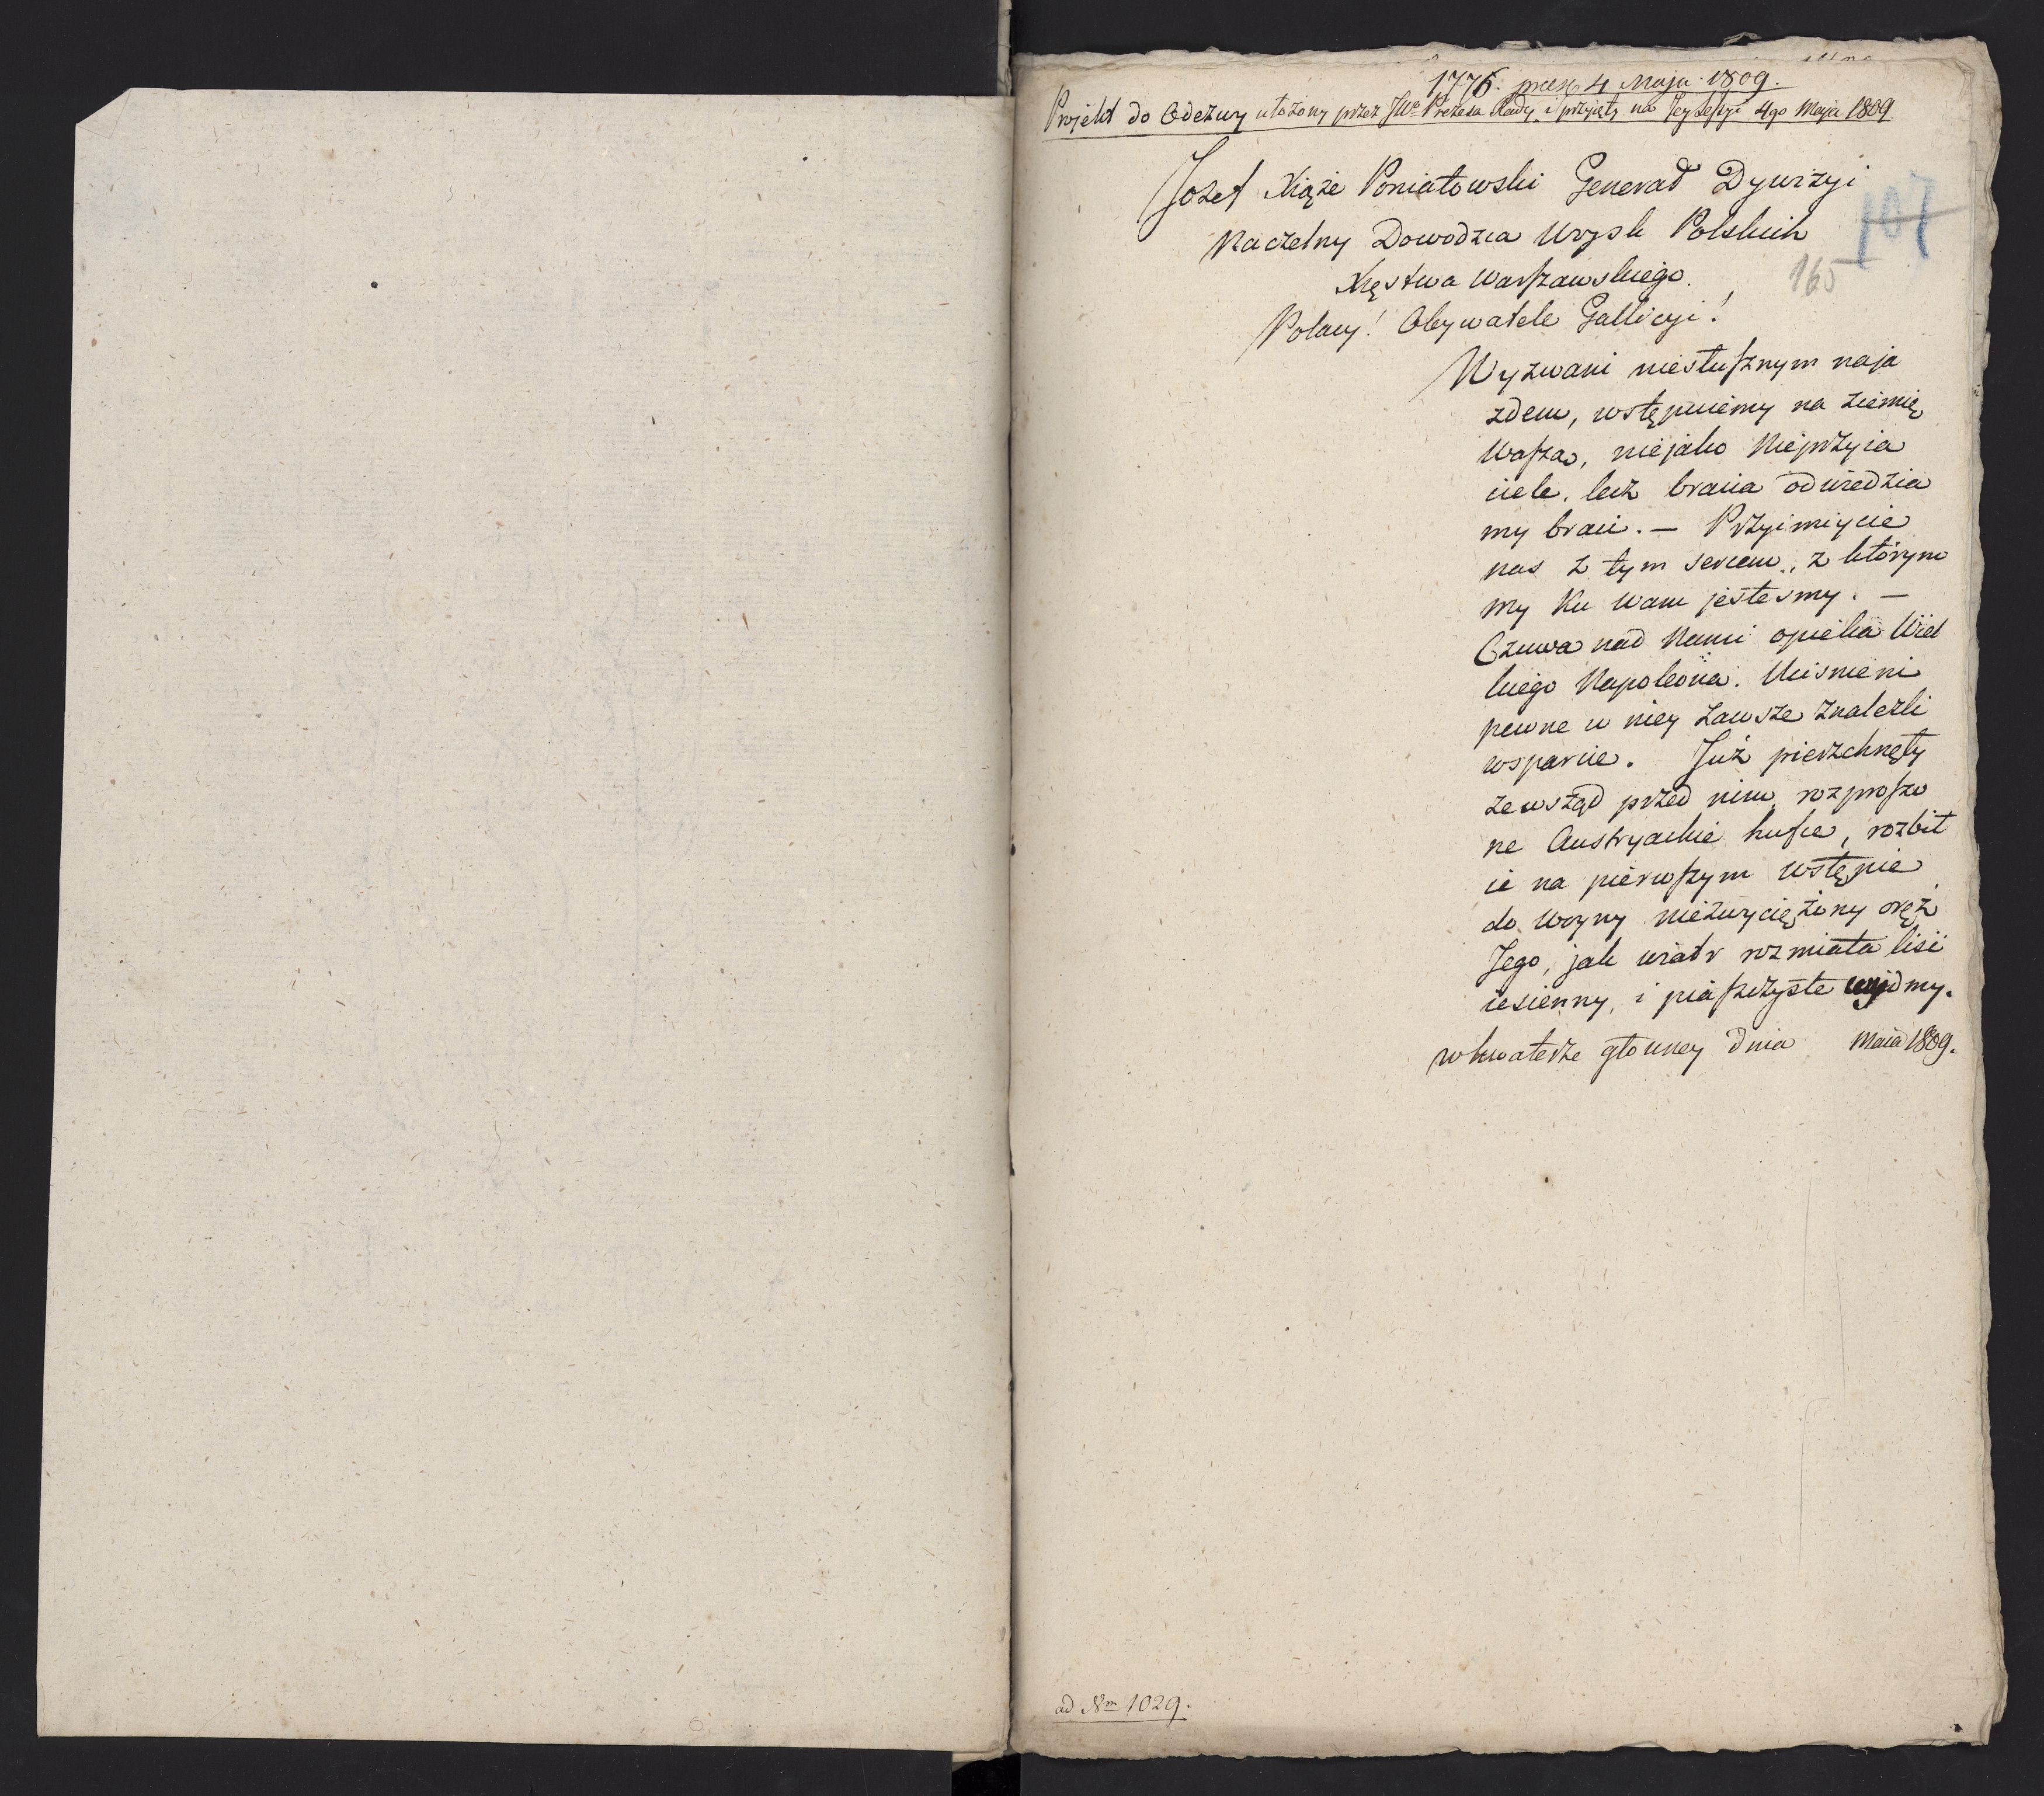 1776. præs. 4 Maja 1809.
Projekt do Odezwy ułożony przez JWo Prezesa Rady, i przyięty na Jey Sessyi 4go Maja 1809.
Jozef Xiąże Poniatowski Generał Dywizyi
Naczelny Dowodzca Woysk Polskich
Xięstwa Warszawskiego.
107
165
Polacy! Obywatele Gallicyi!
Wyzwani niesłusznym naja
zdem, wstępuiemy na ziemię
Waszą, niejako Nieprzyia
ciele, lecz bracia odwiedzia
my braci. — Przyimiycie
nas z tym sercem, z którym
my Ku Wam jestesmy. —
Czuwa nad Nami opieka Wiel
kiego Napoleona. Uciśnieni
pewne w niey zawsze znalezli
wsparcie. Już pierzchnęły
zewsząd przed nim rozproszo
ne Austryackie hufce, rozbit
ie na pierwszym wstępie
do Woyny niezwyciężony oręż
Jego, jak wiatr rozmiata liść
iesienny, i piaszczyste wydmy.
w kwaterze głowney dnia Maia 1809.
ad Nrm 1029.